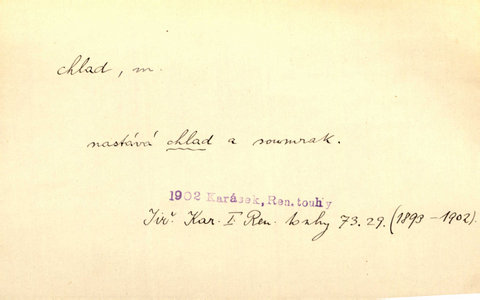 chlad, m.
nastává chlad a soumrak.
1902 Karásek, Ren. touhy
Jiř. Kar. I. Ren. touhy 73.29. (1893-1902).